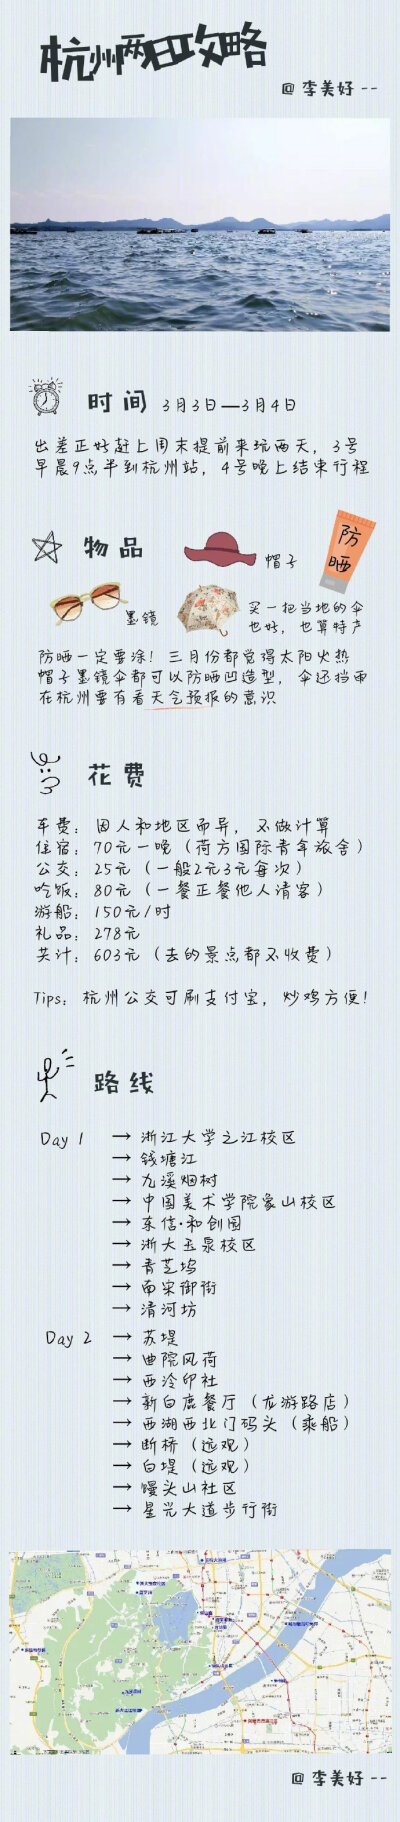 杭州两日攻略
@李美好--
时间 3月3日—3月4日
出差正好赶上周末提前来玩两天，3号
早晨9点半到杭州站，4号晚上结束行程
物品
帽子
防晒
墨镜
买一把当地的伞
也好，也算特产
防晒一定要涂！三月份都觉得太阳火热
帽子墨镜伞都可以防晒凹造型，伞还挡雨
在杭州要有看天气预报的意识
花费
车费：因人和地区而异，不做计算
住宿：70元一晚（荷方国际青年旅舍）
公交：25元（一般2元3元每次）
吃饭：80元（一餐正餐他人请客）
游船：150元/时
礼品：278元
共计：603元（去的景点都不收费）
Tips：杭州公交可刷支付宝，炒鸡方便！
路线
Day 1 → 浙江大学之江校区
→ 钱塘江
→ 九溪烟树
→ 中国美术学院象山校区
→ 东信·和创园
→ 浙大玉泉校区
→ 青芝坞
→ 南宋御街
→ 清河坊
Day 2 → 苏堤
→ 曲院风荷
→ 西泠印社
→ 新白鹿餐厅（龙游路店）
→ 西湖西北门码头（乘船）
→ 断桥（远观）
→ 白堤（远观）
→ 馒头山社区
→ 星光大道步行街
@李美好--